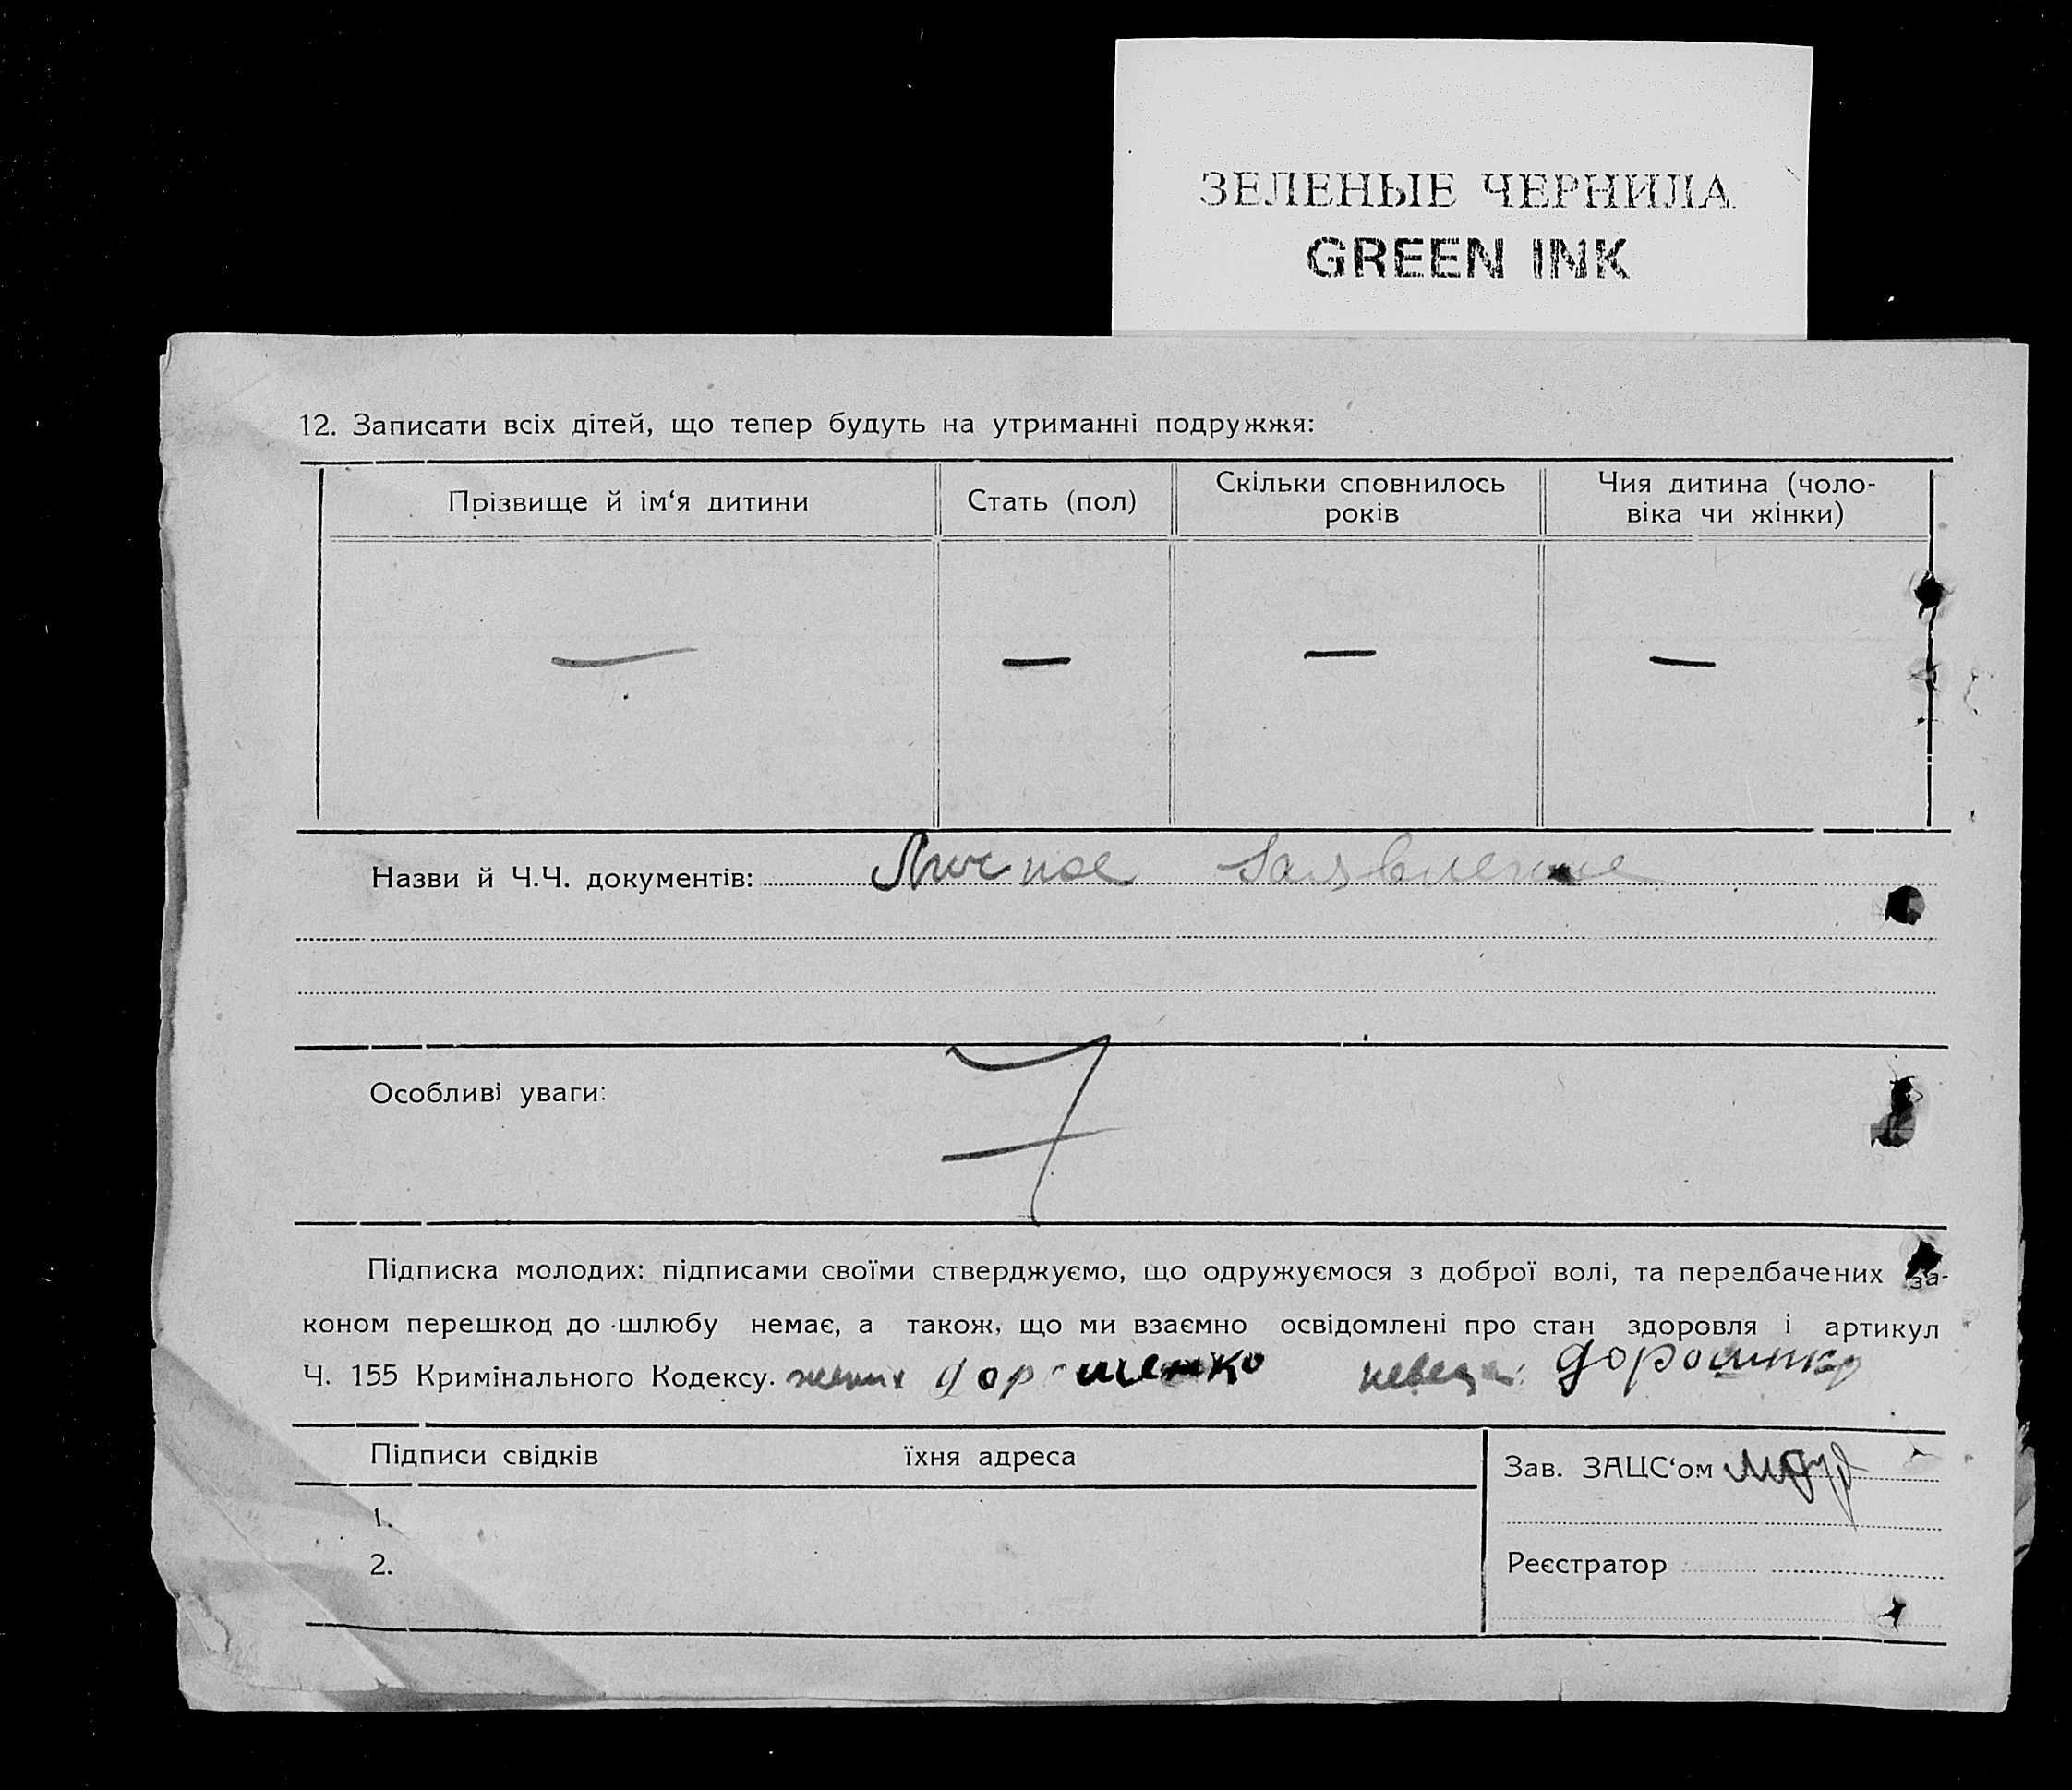 ЗЕЛЕНЫЕ ЧЕРНИЛА
GREEN INK
12. Записати всіх дітей, що тепер будуть на утриманні подружжя:
Прізвище й ім‘я дитини
Стать (пол)
Скільки сповнилось
років
Чия дитина (чоло-
віка чи жінки)
— — — —
Назви й Ч.Ч. документів: Личное Заявление
Особливі уваги:
Підписка молодих: підписами своїми стверджуємо, що одружуємося з доброї волі, та передбачених за-
коном перешкод до шлюбу немає, а також, що ми взаємно освідомлені про стан здоровля і артикул
Ч. 155 Кримінального Кодексу. жених Дорошенко невеста Дорошенко
Підписи свідків їхня адреса
Зав. ЗАЦС‘ом
1.
2.
Реєстратор